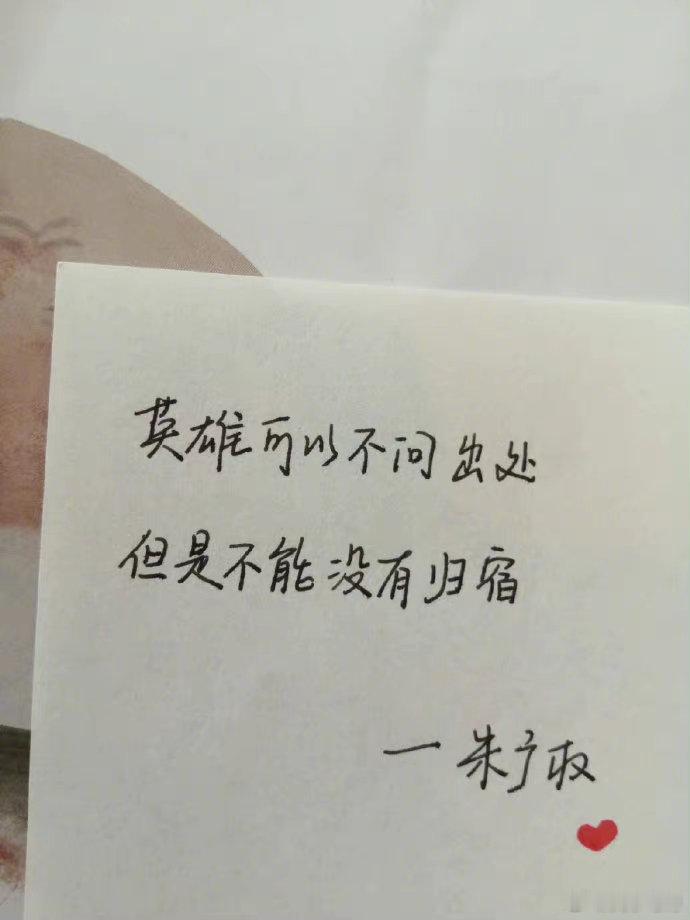 英雄可以不问出处
但是不能没有归宿
一朱广权